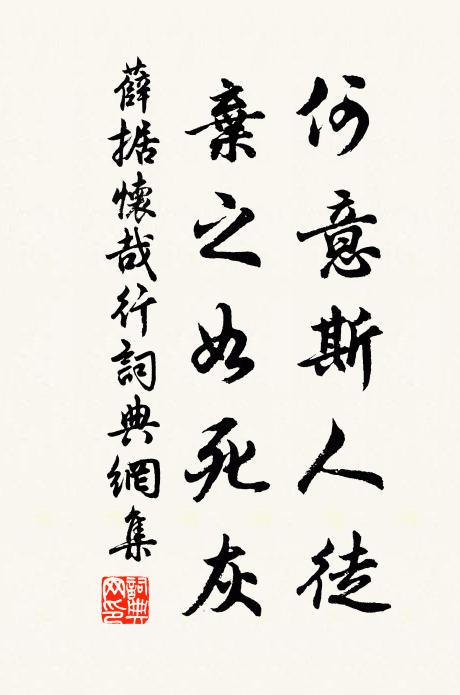 何意斯人徒
棄之如死灰
薛据懷哉行詞典網集
詞典网印